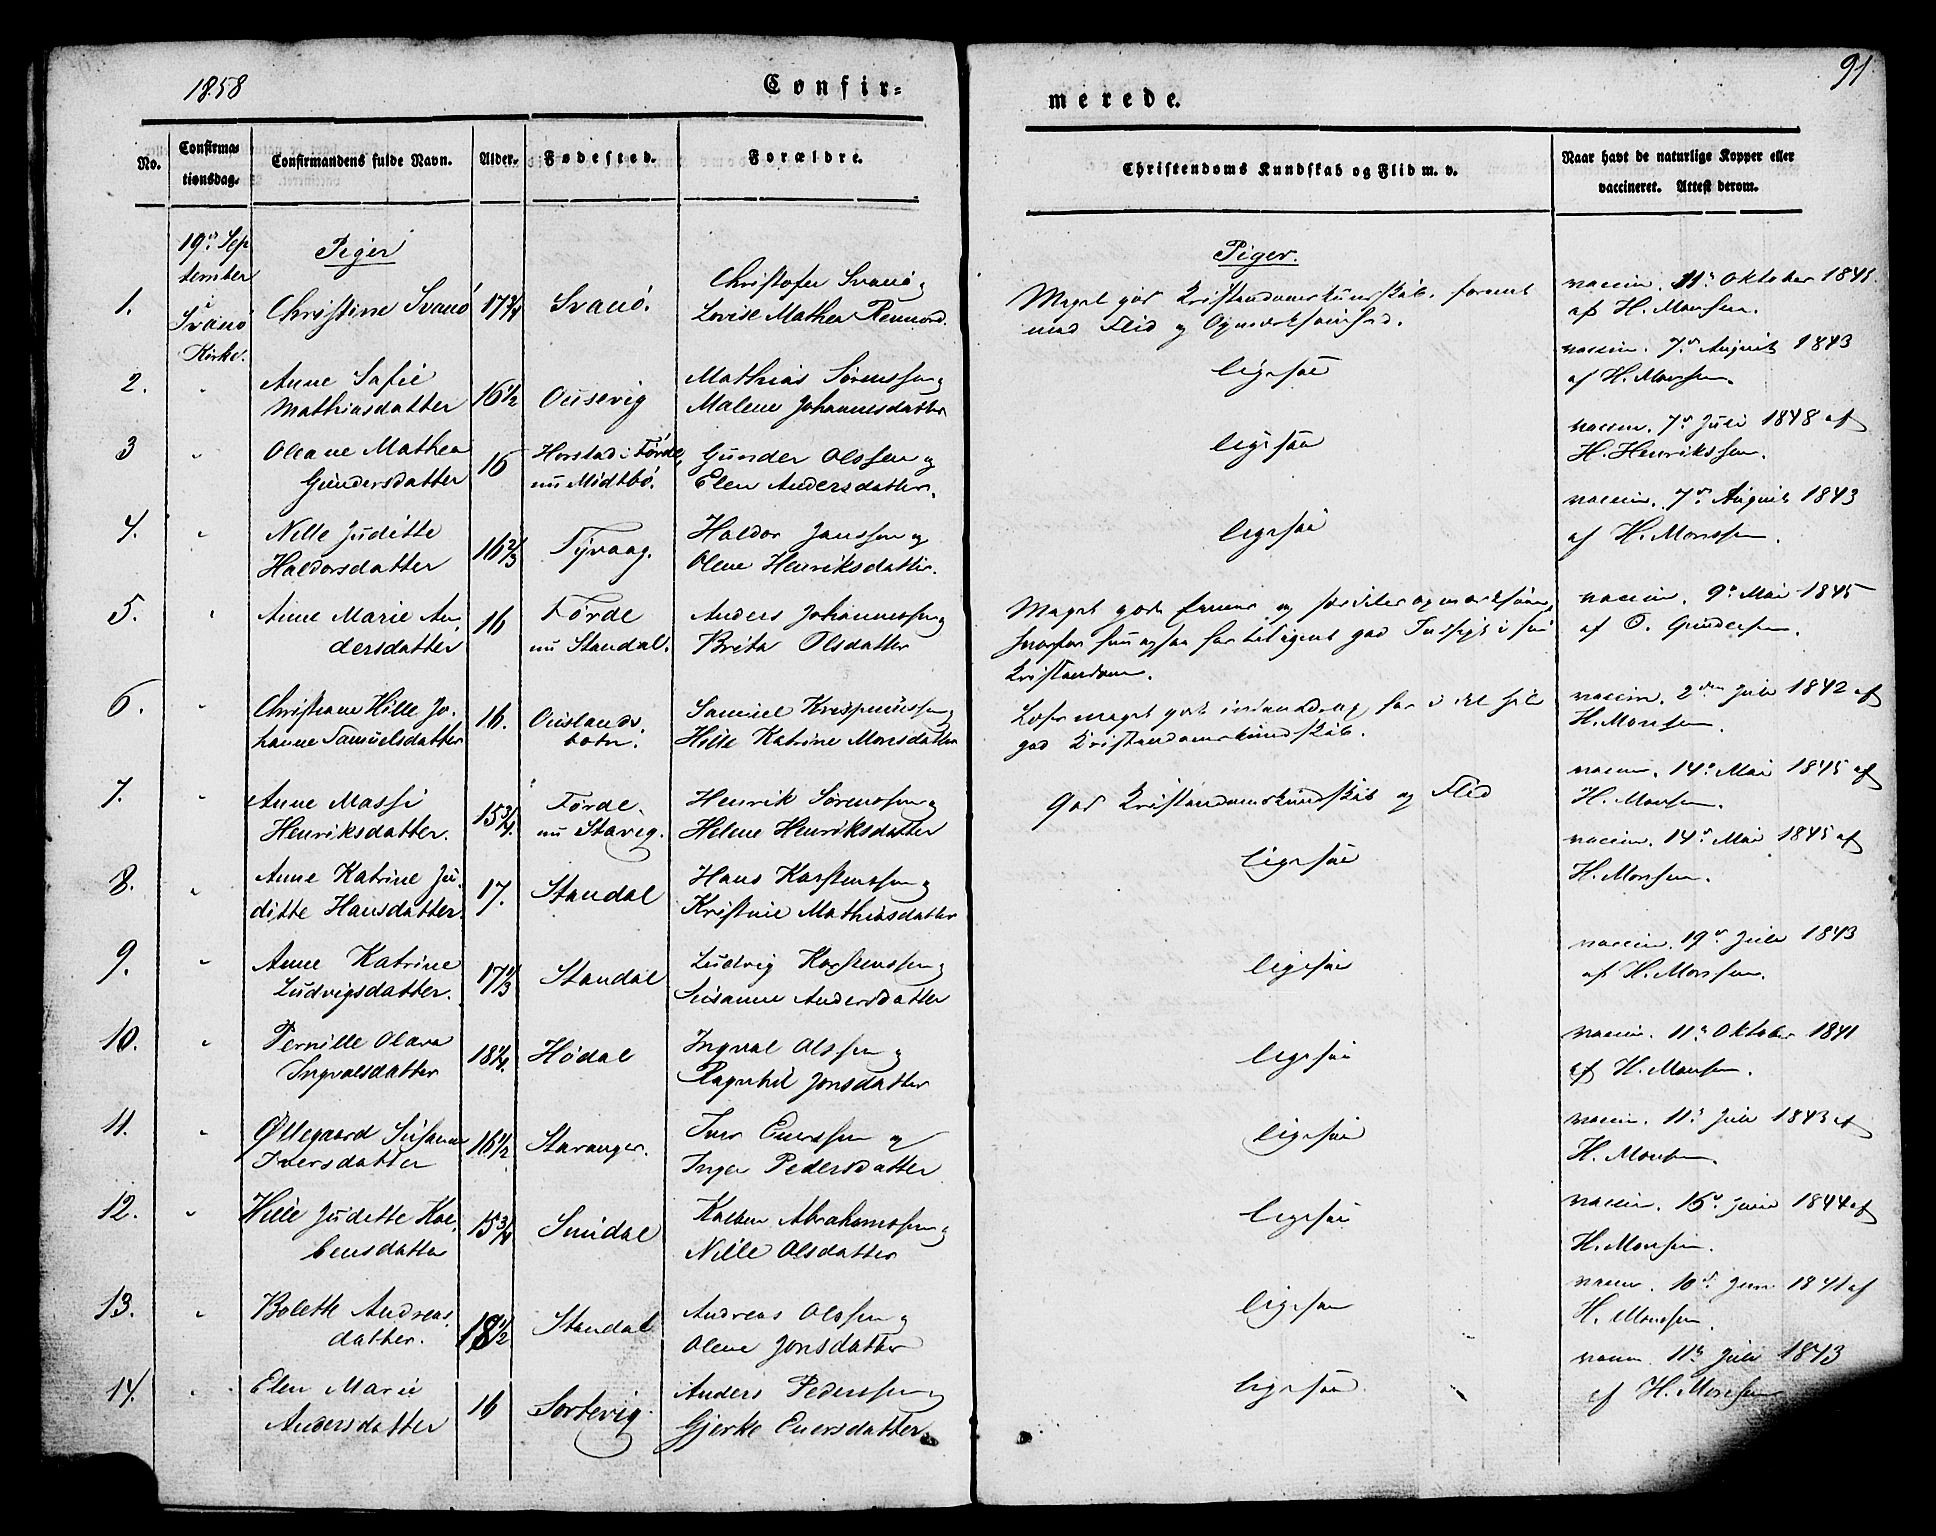 1858
Confir=
merede.
91
No.
Confirma=
tionsdag.
Confirmandens fulde Navn.
Alder.
Fødested.
Forældre.
Christendoms Kundskab og Flid m. v.
Naar havt de naturlige Kopper eller
vaccineret. Attest derom.
19de Sep
tember
Svanö
Kirke.
Piger
Piger.
1.
Christine Svanö
17 3/4
Svanö.
Christofer Svanö og
Lovise Mathea Rennord.
Meget god Kristendomskundskab, forenet
med Flid og Opmærksomhed.
vaccin. 11te Oktober 1841
af H. Monsen.
2.
"
Anne Safie
Mathiasdatter
16 1/2
Ousevig
Mathias Sørenssen og
Malene Johannesdatter
ligesaa
vaccin. 7de August 1843
af H. Monssen.
3
"
Oleane Mathea
Gundersdatter
15
Horstad i Förde,
nu Midtbö.
Gunder Olssen og
Elen Andersdatter.
ligesaa
vaccin. 7de Juli 1848 af
H. Henrikssen.
4.
"
Nille Juditte
Haldorsdatter
16 2/3
Tyvaag.
Haldor Janssen og
Olene Henriksdatter.
ligesaa
vaccin. 7de August 1843
af H. Monssen.
5.
"
Anne Marie An
dersdatter
16
Förde
nu Standal.
Anders Johannessen og
Brita Olsdatter
Meget gode Evner og særdeles opmærksom,
hvorfor hun ogsaa har erhvervet god Indsigt i sin
Kristendom.
vaccin. 9de Mai 1845
af O. Gundersen.
6.
"
Christiane Hille Jo-
hanne Samuelsdatter
16.
Ouslands
botn.
Samuel Krispinussen og
Hille Katrine Monsdatter
Læser meget godt indenad, har i det hele
god Kristendomskundskab.
vaccin. 2den Juli 1842 af
H. Monsen.
7.
"
Anne Massi
Henriksdatter.
15 3/4.
Förde.
nu Stavig.
Henrik Sørenssen og
Helene Henriksdatter
God Kristendomskundskab og Flid
vaccin. 14de Mai 1845 af
H. Monsen.
8.
"
Anne Katrine Ju-
ditte Hansdatter.
17.
Standal
Hans Karstenssen og
Kristine Mathiasdatter
ligesaa
vaccin. 14de Mai 1845 af
H. Monsen.
9.
"
Anne Katrine
Ludvigsdatter.
17 1/3
Standal
Ludvig Karstenssen og
Susanne Andersdatter
ligesaa
vaccin. 19de Juli 1843
af H. Monssen.
10.
"
Pernille Olava
Ingvalsdatter
18 1/4.
Hødal
Ingval Olssen og
Ragnhil Jonsdatter
ligesaa
vaccin. 11te Oktober 1841
af H. Monsen.
11.
"
Øllegaard Susanne
Iversdatter
16 1/2
Stavanger.
Iver Enerssen og
Inger Pedersdatter
ligesaa
vaccin. 11te Juli 1843 af
H. Monsen.
12.
"
Hille Juditte Kol-
bensdatter
15 3/4
Smidal
Kolben Abrahamssen og
Nille Olsdatter
ligesaa
vaccin. 15de Juni 1844 af
H. Monsen.
13.
"
Bolette Andreas
datter.
18 1/2
Standal
Andreas Olssen og
Olene Jonsdatter
ligesaa
vaccin. 10de Juni 1841 af
H. Monsen.
14.
"
Elen Marie
Andersdatter
16
Sortevig.
Anders Pederssen og
Gjerke Enersdatter.
ligesaa.
vaccin. 11te Juli 1843
af H. Monsen